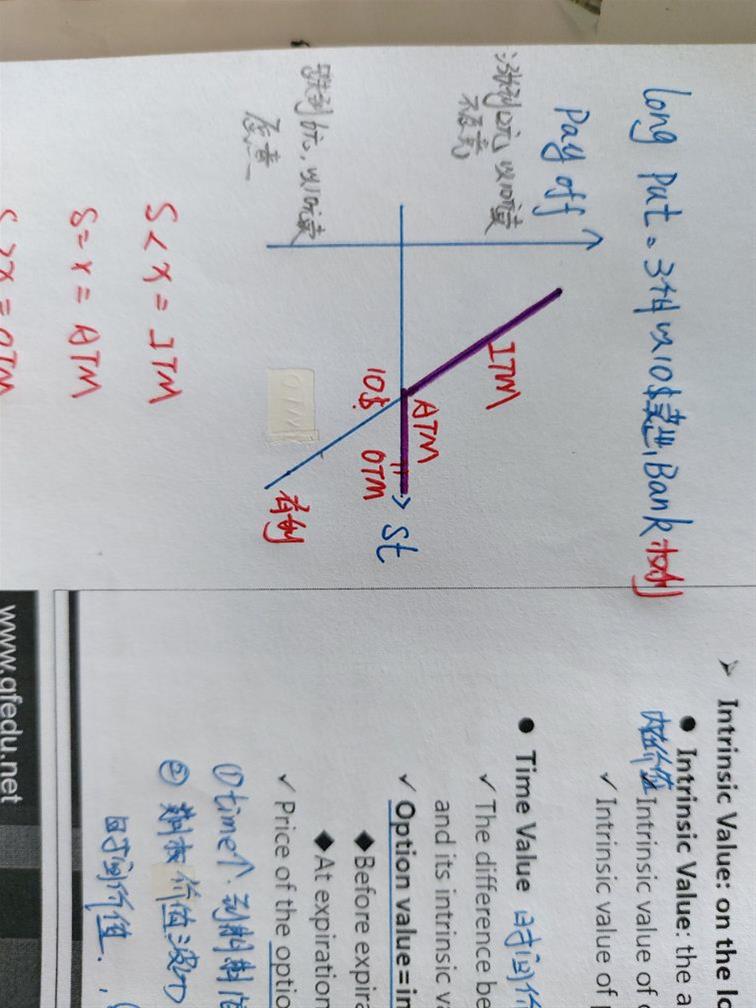 long put。3个月以10$卖出, Bank 权利
Pay off
涨到12元, 以10元卖
不愿意
ITM
ATM
OTM
St
10$
跌到6元, 以10元卖
愿意
OTM
有利
S < X = ITM
S = X = ATM
S > X = OTM
Intrinsic Value: on the lo
Intrinsic Value: the a
内在价值 Intrinsic value of
Intrinsic value of
Time Value 时间价
The difference be
and its intrinsic va
Option value=in
Before expira
At expiration
Price of the optio
① time↑.到期时
② 标的价值波动
时间价值.
www.qfedu.net